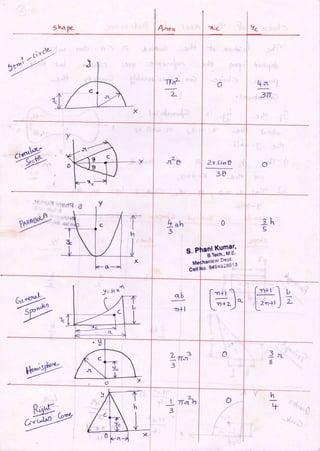 Shape Area xc yc
Semi-circle y C r x
πr²/2 0 4r/3π
Circular Sector y r θ θ C x o
r²θ 2r sinθ/3θ 0
PARABOLA y C h a x
4/3 ah 0 3/5 h
S. Phani Kumar,
B.Tech., M.E.
Mechanical Dept.
General Spandrel y = kxⁿ C b a
ab/n+1 [n+1/n+2] a [n+1/2n+1] b/2
Hemisphere y C r yc o x
2/3 πr³ 0 3/8 r
Right Circular Cone y C h yc o r x
1/3 πr²h 0 h/4